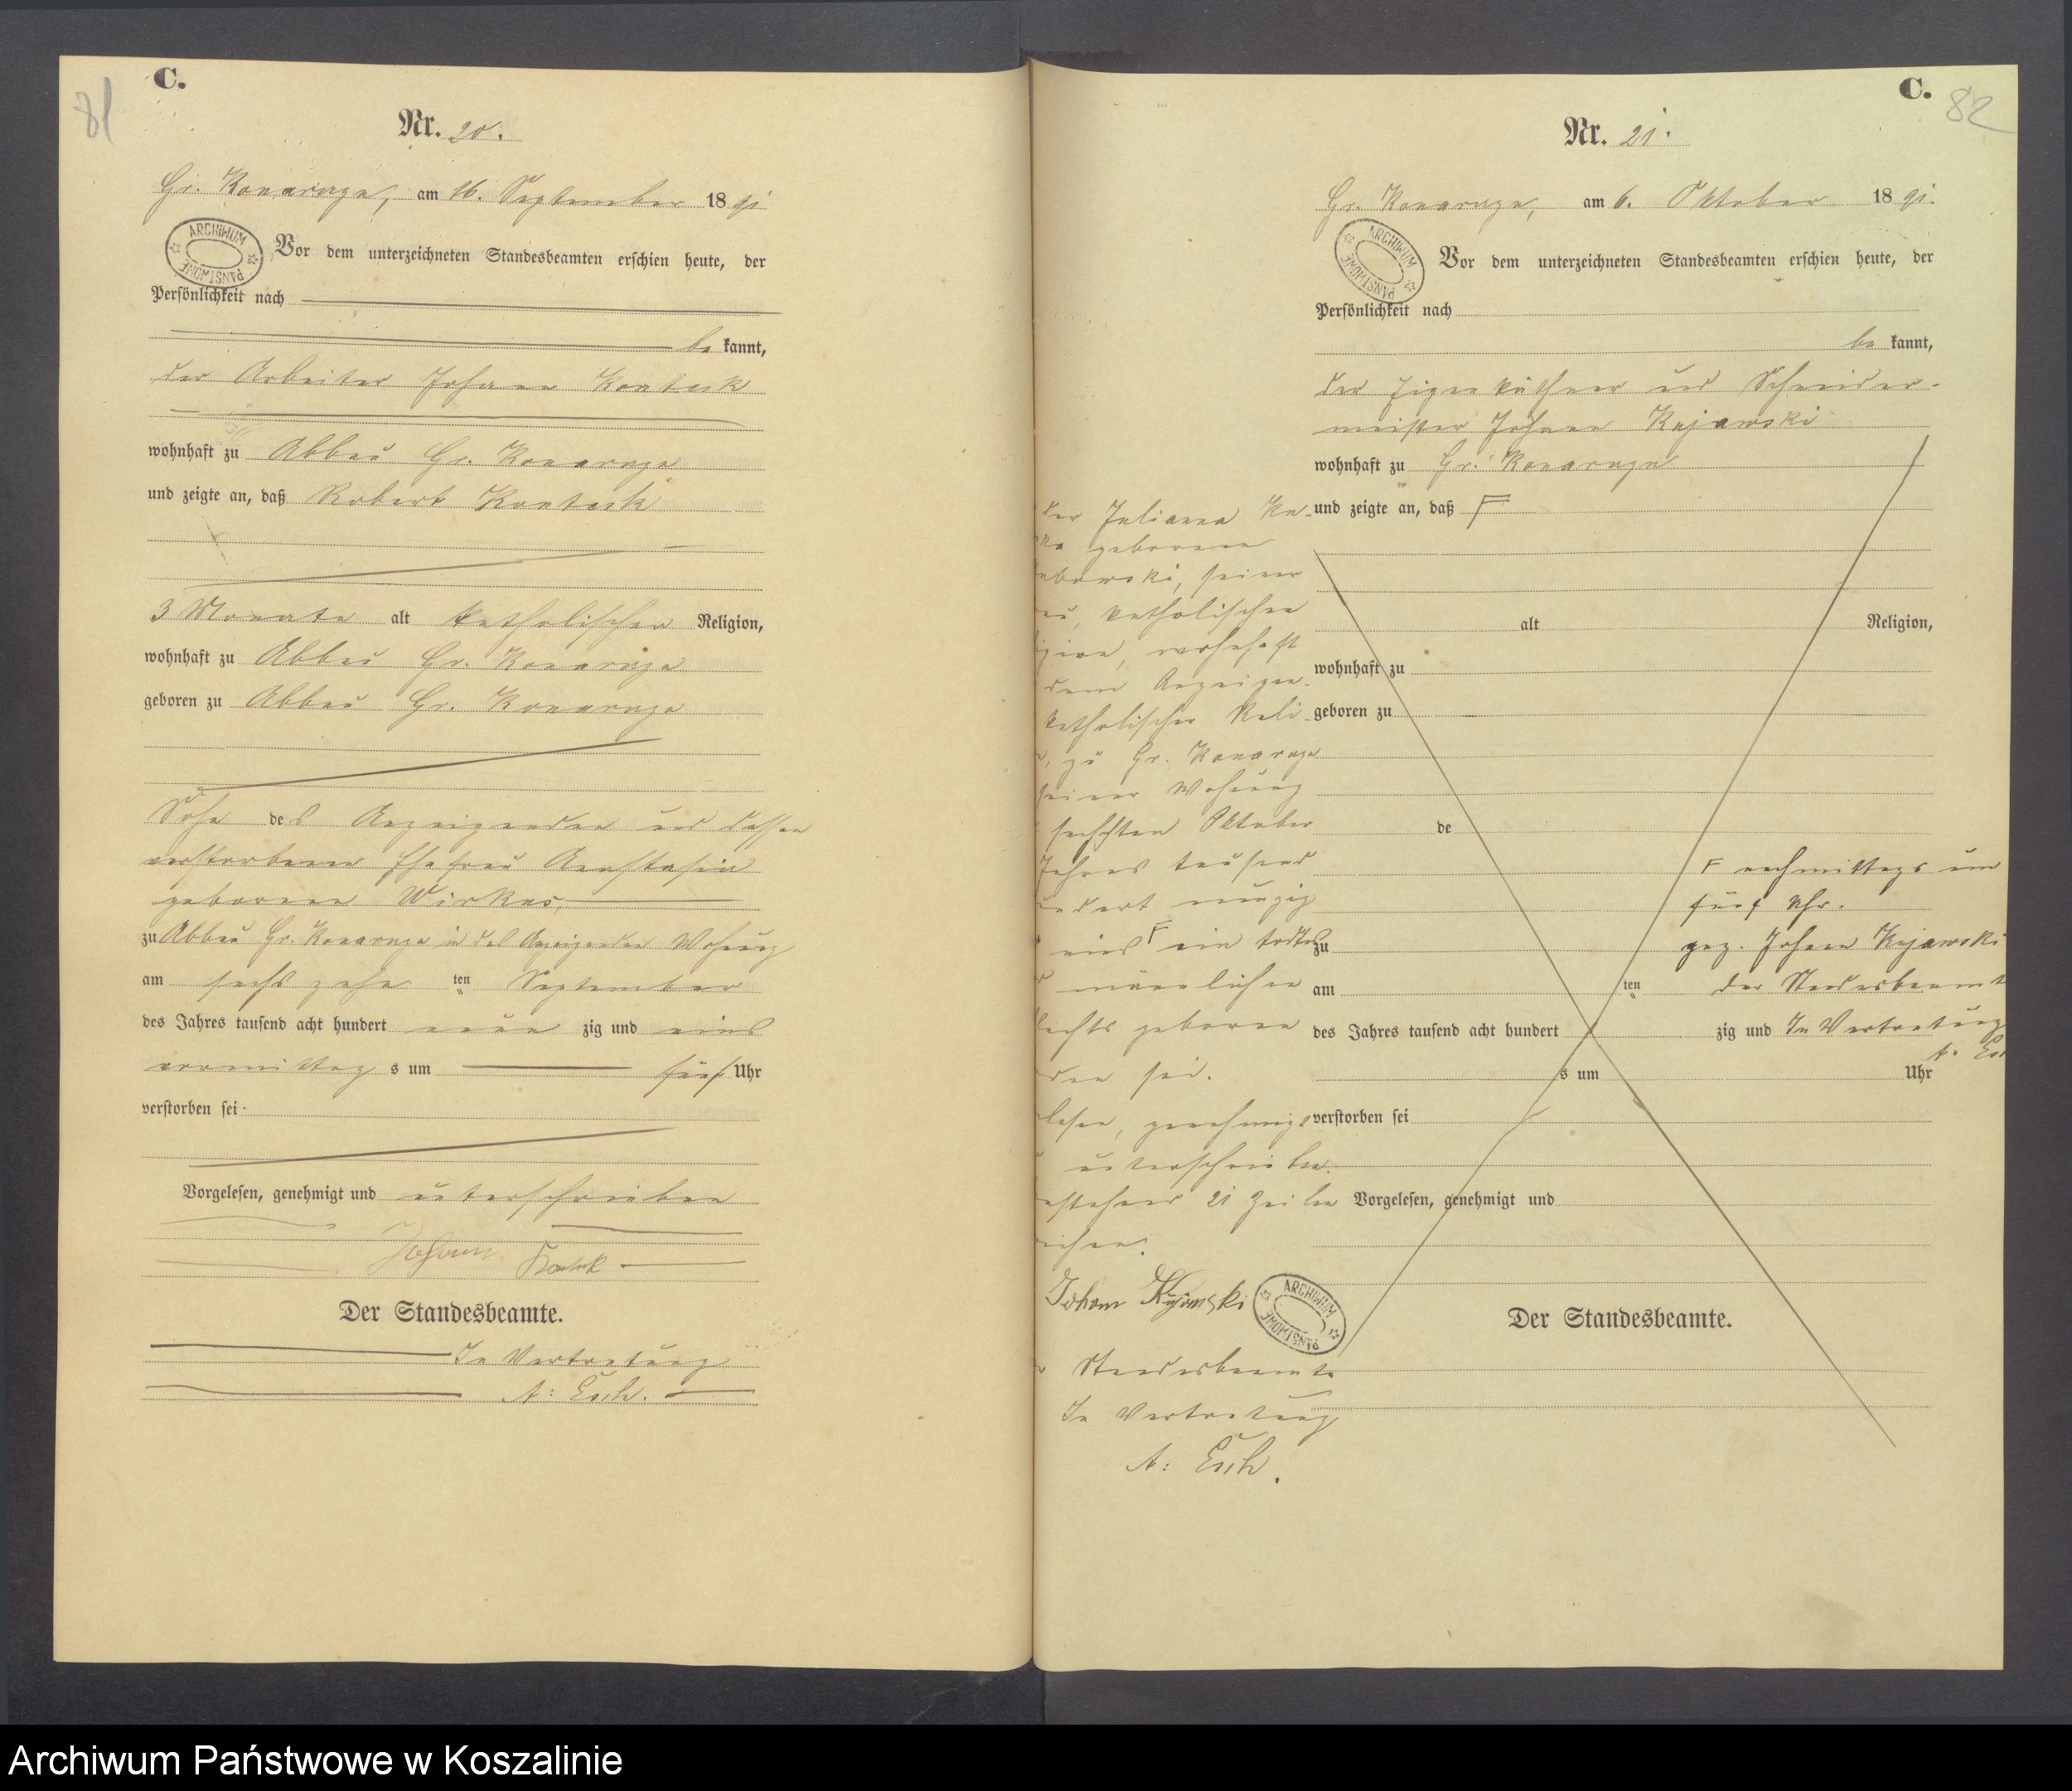 81
C.
Nr. 20.
Gr. Konarczyn, am 16. September 1891
ARCHIWUM PAŃSTWOWE
Vor dem unterzeichneten Standesbeamten erschien heute, der
Persönlichkeit nach
be kannt,
der Arbeiter Johann
wohnhaft zu Abbau Gr. Konarczyn
und zeigte an, daß Robert
3 Monate alt katholischer Religion,
wohnhaft zu Abbau Gr. Konarczyn
geboren zu Abbau Gr. Konarczyn
Sohn des Anzeigenden und dessen
verstorbenen Ehefrau Anastasia
geborenen
zu Abbau Gr. Konarczyn in des Anzeigenden Wohnung
am sechszehn ten September
des Jahres tausend acht hundert neun zig und eins
vormittag s um fünf Uhr
verstorben sei.
Vorgelesen, genehmigt und unterschrieben
Johann
Der Standesbeamte.
In Vertretung
A:
C.
82
Nr. 21.
Gr. Konarczyn, am 6. Oktober 1891.
ARCHIWUM PAŃSTWOWE
Vor dem unterzeichneten Standesbeamten erschien heute, der
Persönlichkeit nach
be kannt,
der Eigenkäthner und Schneider-
meister Johann Kujawski
wohnhaft zu Gr. Konarczyn
und zeigte an, daß F
alt Religion,
wohnhaft zu
geboren zu
de
zu
am ten
des Jahres tausend acht hundert zig und
s um Uhr
verstorben sei
Vorgelesen, genehmigt und
Der Standesbeamte.
der Julianna Ku-
geborenen
seiner
katholischen
wohnhaft
dem Anzeigen-
katholischer Reli-
zu Gr. Konarczyn
seiner Wohnung
sechsten Oktober
Jahres tausend
neunzig
eins F ein todtes
männlichen
geboren
sei.
genehmigt
unterschrieben.
21 Zeilen
Johann Kujawski
ARCHIWUM PAŃSTWOWE
Standesbeamte
In Vertretung
A:
F nachmittags um
fünf Uhr.
gez. Johann Kujawski
der Standesbeamt
In Vertretung
A:
Archiwum Państwowe w Koszalinie